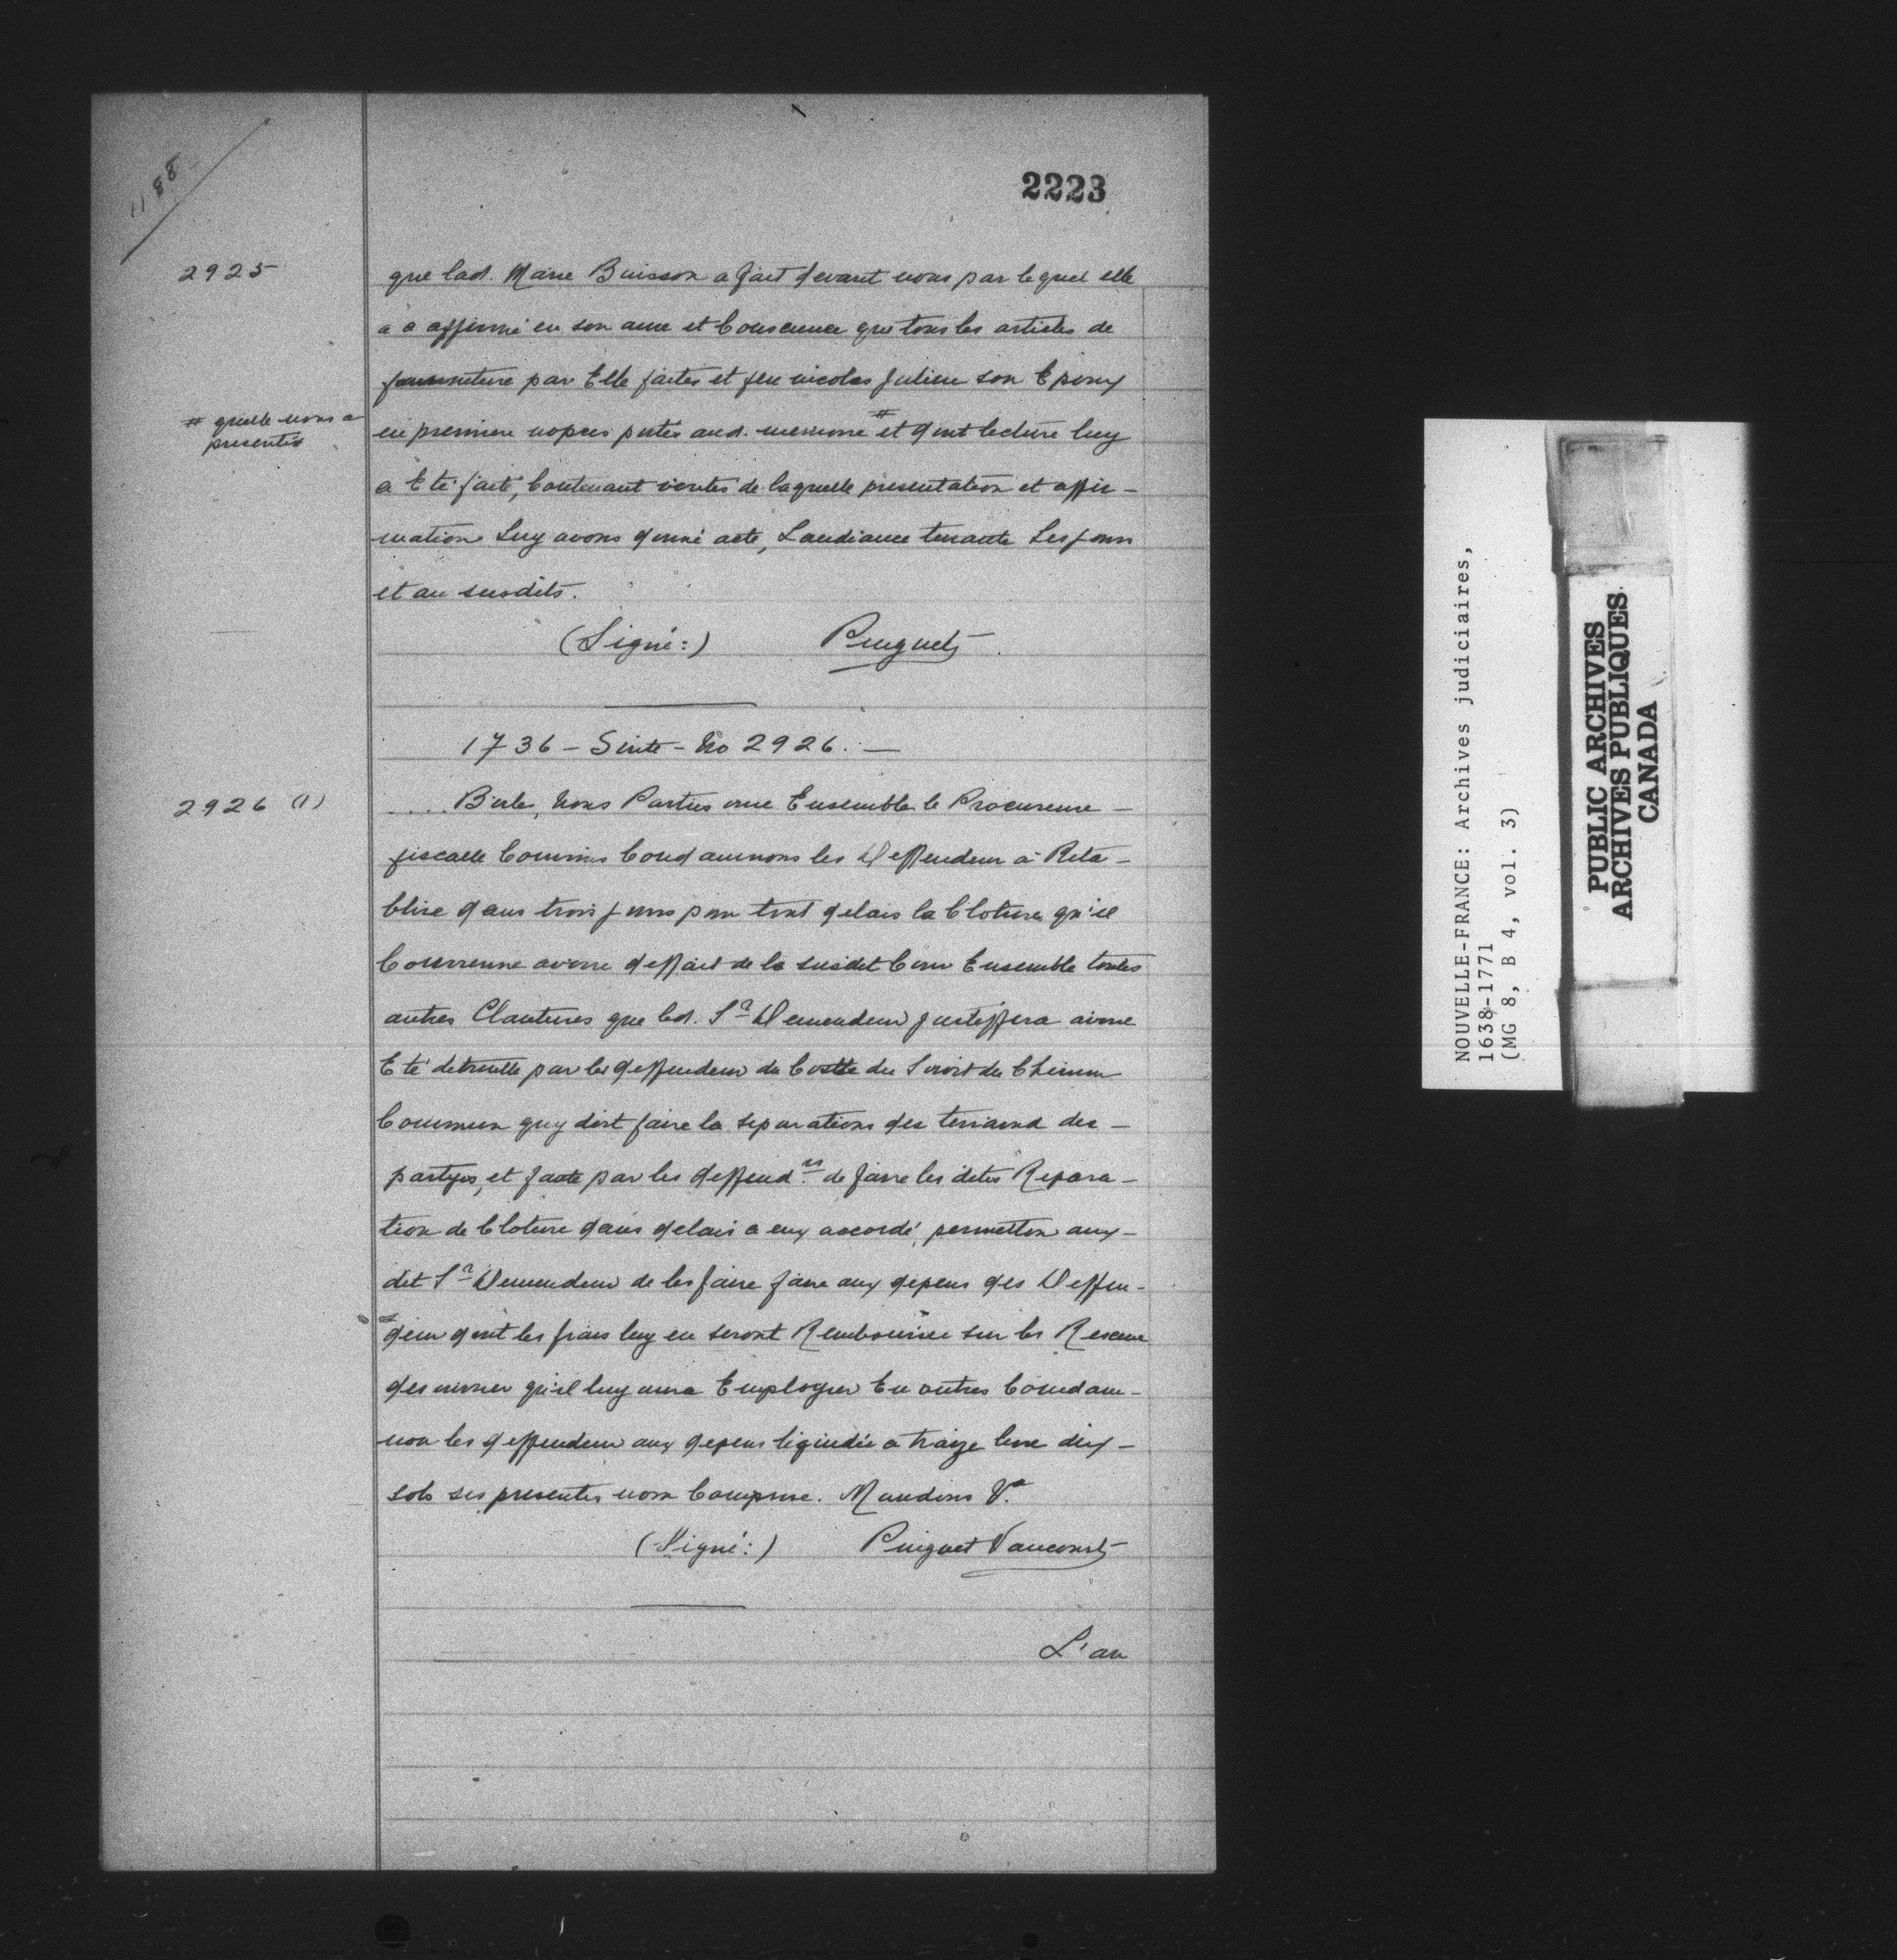 1188
2223
2925
que lad. Marie Buisson a fait devant nous par lequel elle
a a affirmé en son ame et Conscience que tous les articles de
fourniture par Elle faites et feu nicolas Julien son Epoux
# quelle nous a
presentés
en premiere nopces portés aud. memoire # et dont lecture luy
a Eté faite, Contenant verités de laquelle presentation et affir-
mation Luy avons donné acte, Laudiance tenante Les jour
et an susdits.
(Signé:) Puguet
1736 - Suite - No 2926. -
2926 (1)
.... Nous Parties ouie Ensemble le Procureure -
fiscalle Commis Condamnons les Deffendeur à Reta-
blire dans trois jours pour tout delais la Cloture qu'il
Couvienne avoire deffait de la susdit Cour Ensemble toutes
autres Clautures que led. Sr. Demendeur justiffira avoire
Eté detruitte par les deffendeur du Costte du Sorois du Chemin
Commun quy doit faire la separations des terraind des -
partyes, et faute par les deffend.rs de faire les dites Repara-
tion de Cloture dans delais a eux accordé, permetton aux-
dit Sr. Demendeur de les faire faire aux depens des Deffen-
deur dont les frais luy en seront Remboursée sur les
des qu'il luy aura Employer En outres Condam-
non les deffendeur aux depens liquidée a traize livre dix-
sols ses presentes non Comprise. Mandons &a.
(Signé:) Puiguet Vaucourt
L'an
NOUVELLE-FRANCE: Archives judiciaires,
1638-1771
(MG 8, B 4, vol. 3)
PUBLIC ARCHIVES
ARCHIVES PUBLIQUES
CANADA